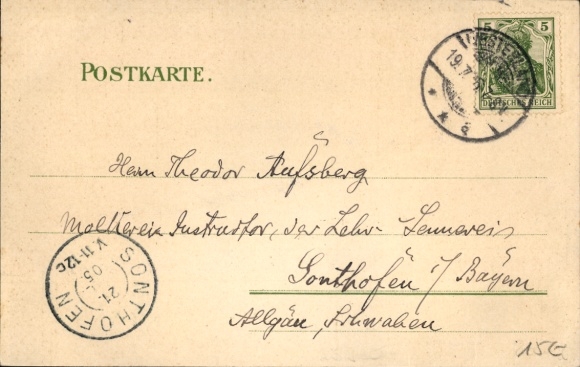 5 5
DEUTSCHES REICH
19.7.
* * a
POSTKARTE.
Herrn Theodor Aufsberg
Molkerei Instructor, der Lehr-Sennerei
Sonthofen i/ Bayern
Allgäu, Schwaben
SONTHOFEN
V. 11-12c
21.
05
15€